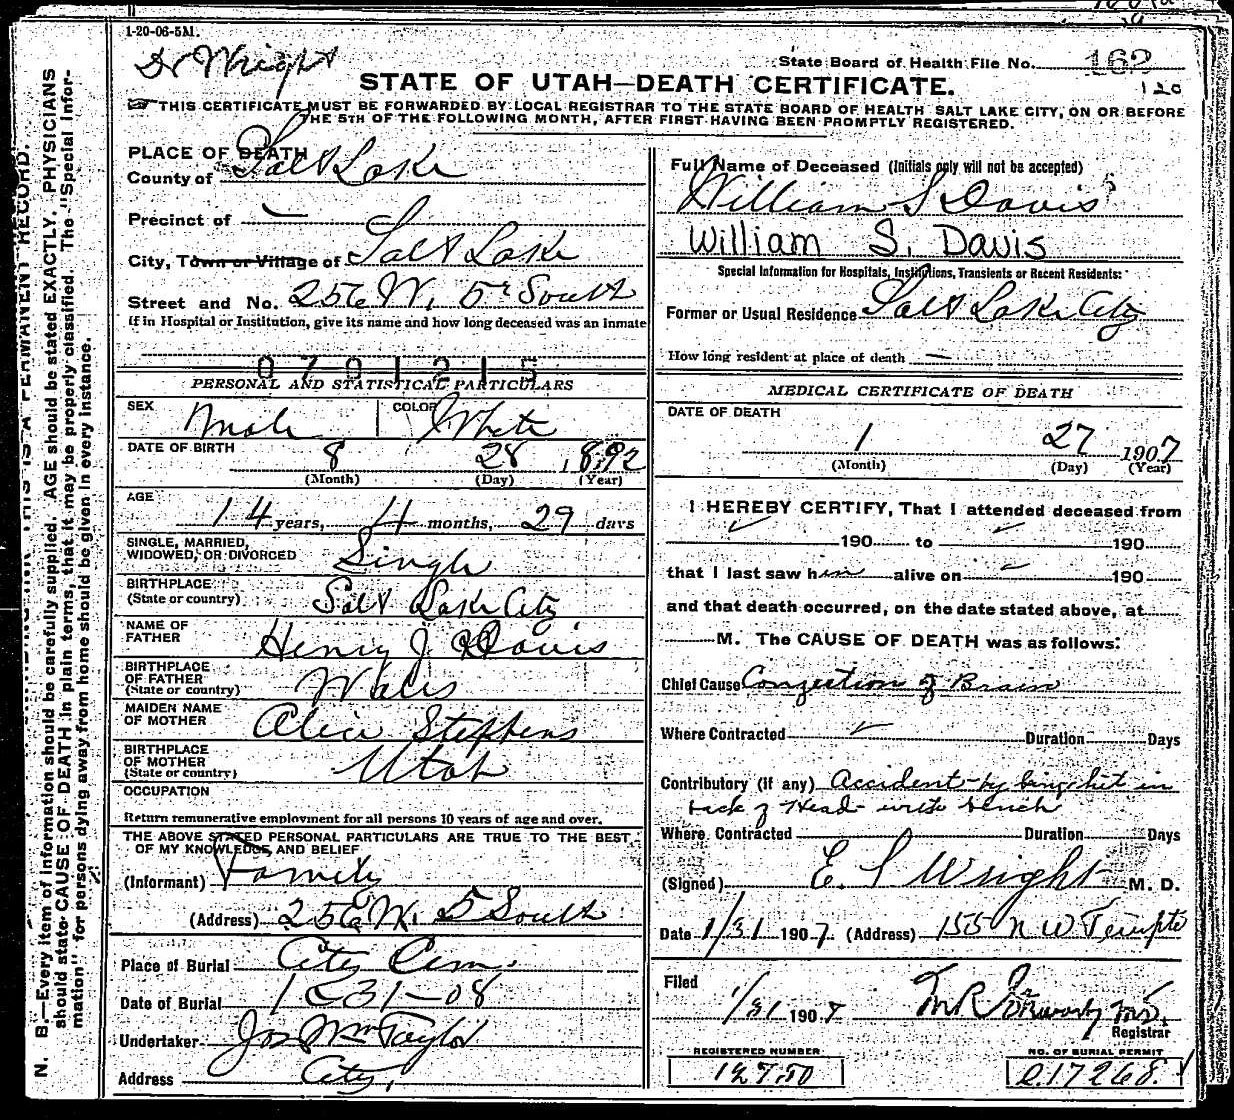 1-20-06-5M.
Dr Wright
State Board of Health File No. 162
120
STATE OF UTAH—DEATH CERTIFICATE.
THIS CERTIFICATE MUST BE FORWARDED BY LOCAL REGISTRAR TO THE STATE BOARD OF HEALTH SALT LAKE CITY, ON OR BEFORE
THE 5TH OF THE FOLLOWING MONTH, AFTER FIRST HAVING BEEN PROMPTLY REGISTERED.
PLACE OF DEATH
County of Salt Lake
Precinct of —
City, Town or Village of Salt Lake
Street and No. 256 W. 5th South
If in Hospital or Institution, give its name and how long deceased was an inmate
0701215
PERSONAL AND STATISTICAL PARTICULARS
SEX Male COLOR White
DATE OF BIRTH 8 28 1892
(Month) (Day) (Year)
AGE
14 years, 4 months, 29 days
SINGLE, MARRIED,
WIDOWED, OR DIVORCED Single
BIRTHPLACE
(State or country) Salt Lake City
NAME OF
FATHER Henry J. Davis
BIRTHPLACE
OF FATHER
(State or country) Wales
MAIDEN NAME
OF MOTHER Alice Stephens
BIRTHPLACE
OF MOTHER
(State or country) Utah
OCCUPATION
Return remunerative employment for all persons 10 years of age and over.
THE ABOVE STATED PERSONAL PARTICULARS ARE TRUE TO THE BEST
OF MY KNOWLEDGE AND BELIEF
(Informant) Family
(Address) 256 W. 5 South
Place of Burial City Cem.
Date of Burial 1-31-08
Undertaker Jos Wm Taylor
Address City.
Full Name of Deceased (Initials only will not be accepted)
William S Davis
William S. Davis
Special Information for Hospitals, Institutions, Transients or Recent Residents:
Former or Usual Residence Salt Lake City
How long resident at place of death —
MEDICAL CERTIFICATE OF DEATH
DATE OF DEATH
1 27 1907
(Month) (Day) (Year)
I HEREBY CERTIFY, That I attended deceased from
190 to 190
that I last saw him alive on 190
and that death occurred, on the date stated above, at
M. The CAUSE OF DEATH was as follows:
Chief Cause Congestion of Brain
Where Contracted Duration Days
Contributory (if any) Accident by being hit in
back of Head with bench
Where Contracted Duration Days
(Signed) E. S Wright M. D.
Date 1/31 1907. (Address) 155 N W Temple
Filed
1/31 1907
Registrar
REGISTERED NUMBER
12750
NO. OF BURIAL PERMIT
C.17268.
N. B.—Every item of information should be carefully supplied. AGE should be stated EXACTLY. PHYSICIANS
should state CAUSE OF DEATH in plain terms, that it may be properly classified. The "Special Infor-
mation" for persons dying away from home should be given in every instance.
THIS IS A PERMANENT RECORD.